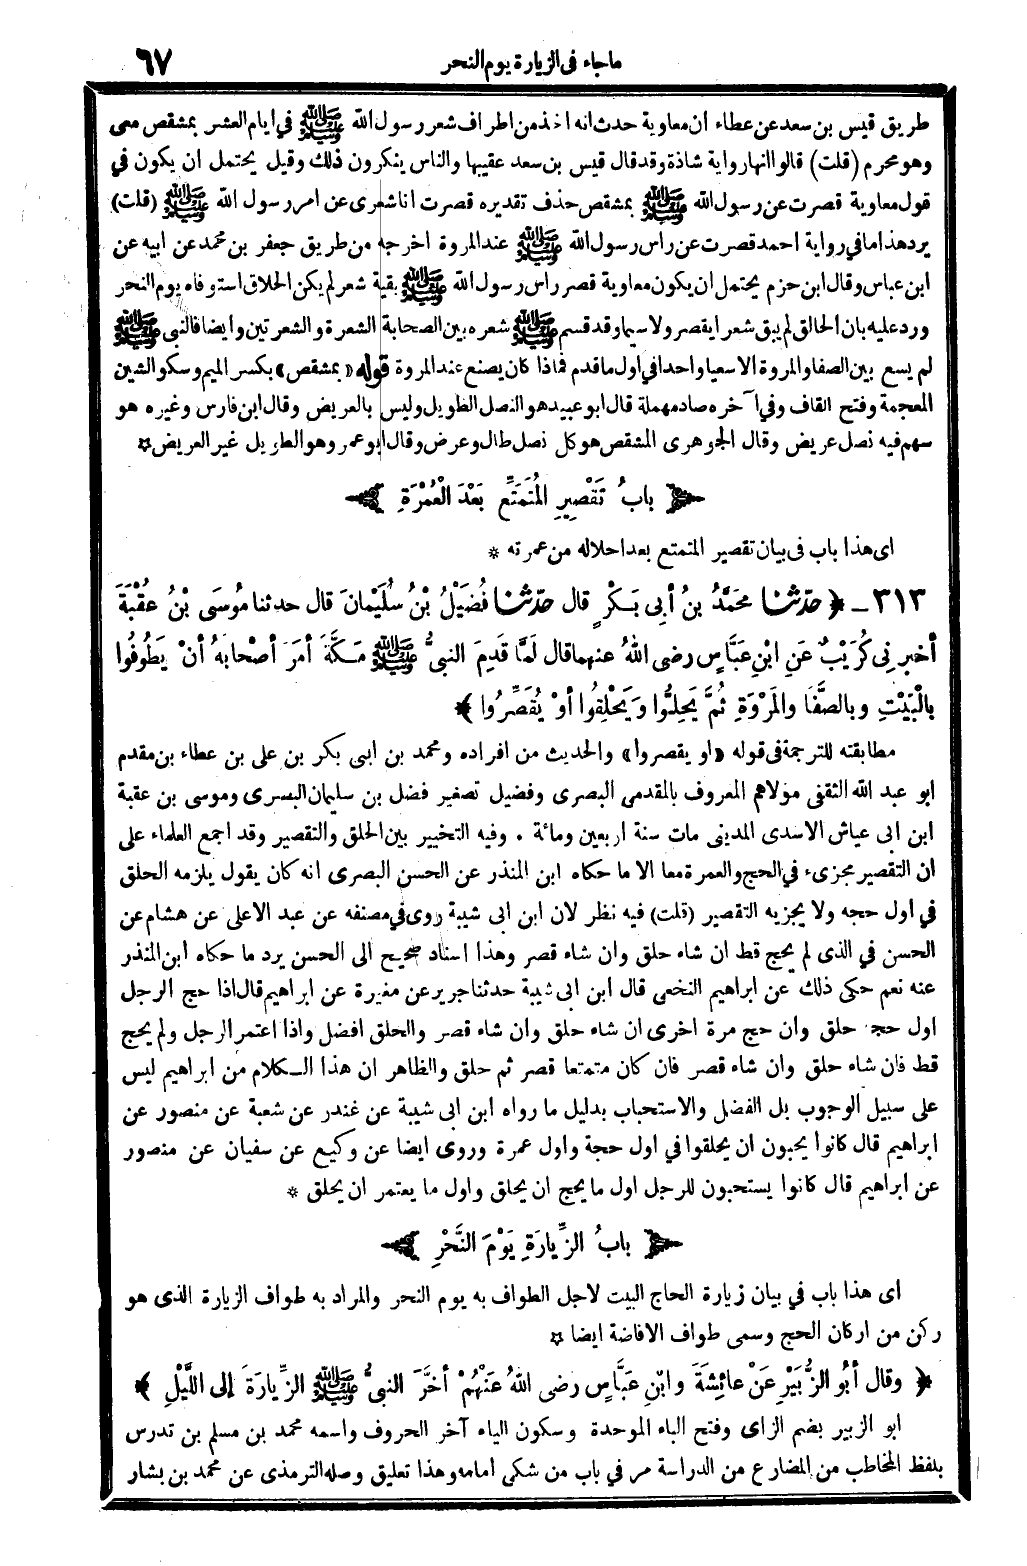 ماجاء فى الزيارة يوم النحر ٦٧
طريق قيس بن سعد عن عطاء ان معاوية حدث انه اخذ من اطراف شعر رسول الله ﷺ في ايام العشر بمشقص معى
وهو محرم (قلت) قالوا انها رواية شاذة وقد قال قيس بن سعد عقيبها والناس ينكرون ذلك وقيل يحتمل ان يكون في
قول معاوية قصرت عن رسول الله ﷺ بمشقص حذف تقديره قصرت انا شعرى عن امر رسول الله ﷺ (قلت)
يرد هذا ما في رواية احمد قصرت عن راس رسول الله ﷺ عند المروة اخرجه من طريق جعفر بن محمد عن ابيه عن
ابن عباس وقال ابن حزم يحتمل ان يكون معاوية قصر راس رسول الله ﷺ بقية شعر لم يكن الحلاق استوفاه يوم النحر
ورد عليه بان الحالق لم يبق شعرا يقصر ولا سيما وقد قسم ﷺ شعره بين الصحابة الشعرة والشعرتين وايضا فالنبى ﷺ
لم يسع بين الصفا والمروة الا سعيا واحدا في اول ما قدم فماذا كان يصنع عند المروة قوله «بمشقص» بكسر الميم وسكو الشين
المعجمة وفتح القاف وفي آخره صاد مهملة قال ابو عبيد هو النصل الطويل وليس بالعريض وقال ابن فارس وغيره هو
سهم فيه نصل عريض وقال الجوهرى المشقص هو كل نصل طال وعرض وقال ابو عمر وهو الطويل غير العريض ✡
﴿ بابُ تَقْصِيرِ المُتَمَتِّعِ بَعْدَ الْعُمْرَةِ ﴾
اى هذا باب فى بيان تقصير المتمتع بعد احلاله من عمرته *
٣١٣ ـ ﴿ حدّثنا محَمَّدُ بنُ أبِى بَـكْرٍ قال حدّثنا فُضَيْلُ بْنُ سُلَيْمانَ قال حدثنا مُوسَى بْنُ عُقْبَةَ
أخبرنِى كُرَيْبٌ عَنِ ابْنِ عَبَّاسٍ رضى اللهُ عنهما قال لَمَّا قَدِمَ النبىُّ ﷺ مَـكَّةَ أمَرَ أصْحابَهُ أنْ يَطُوفُوا
بِالْبَيْتِ وبالصَّفَا والمَرْوَةِ ثُمَّ يَحِلُّوا ويَحْلِقُوا أوْ يُقَصِّرُوا ﴾
مطابقته للترجمة فى قوله «او يقصروا» والحديث من افراده ومحمد بن ابى بكر بن على بن عطاء بن مقدم
ابو عبد الله الثقفى مولاهم المعروف بالمقدمى البصرى وفضيل تصغير فضل بن سليمان البصرى وموسى بن عقبة
ابن ابى عياش الاسدى المدينى مات سنة اربعين ومائة . وفيه التخيير بين الحلق والتقصير وقد اجمع العلماء على
ان التقصير مجزىء في الحج والعمرة معا الا ما حكاه ابن المنذر عن الحسن البصرى انه كان يقول يلزمه الحلق
في اول حجه ولا يجزيه التقصير (قلت) فيه نظر لان ابن ابى شيبة روى في مصنفه عن عبد الاعلى عن هشام عن
الحسن في الذى لم يحج قط ان شاء حلق وان شاء قصر وهذا اسناد صحيح الى الحسن يرد ما حكاه ابن المنذر
عنه نعم حكى ذلك عن ابراهيم النخعى قال ابن ابى شيبة حدثنا جرير عن مغيرة عن ابراهيم قال اذا حج الرجل
اول حجه حلق وان حج مرة اخرى ان شاء حلق وان شاء قصر والحلق افضل واذا اعتمر الرجل ولم يحج
قط فان شاء حلق وان شاء قصر فان كان متمتعا قصر ثم حلق والظاهر ان هذا الـكلام من ابراهيم ليس
على سبيل الوجوب بل الفضل والاستحباب بدليل ما رواه ابن ابى شيبة عن غندر عن شعبة عن منصور عن
ابراهيم قال كانوا يحبون ان يحلقوا في اول حجة واول عمرة وروى ايضا عن وكيع عن سفيان عن منصور
عن ابراهيم قال كانوا يستحبون للرجل اول ما يحج ان يحلق واول ما يعتمر ان يحلق *
﴿ بابُ الزِّيارَةِ يَوْمَ النَّحْرِ ﴾
اى هذا باب في بيان زيارة الحاج البيت لاجل الطواف به يوم النحر والمراد به طواف الزيارة الذى هو
ركن من اركان الحج وسمى طواف الافاضة ايضا ✡
﴿ وقال أبُو الزُّبَيْرِ عَنْ عائِشَةَ وابنِ عَبَّاسٍ رضى اللهُ عَنْهُمْ أخَّرَ النبىُّ ﷺ الزِّيارَةَ إلى اللَّيْلِ ﴾
ابو الزبير بضم الزاى وفتح الباء الموحدة وسكون الياء آخر الحروف واسمه محمد بن مسلم بن تدرس
بلفظ المخاطب من المضارع من الدراسة مر في باب من شكى امامه وهذا تعليق وصله الترمذى عن محمد بن بشار